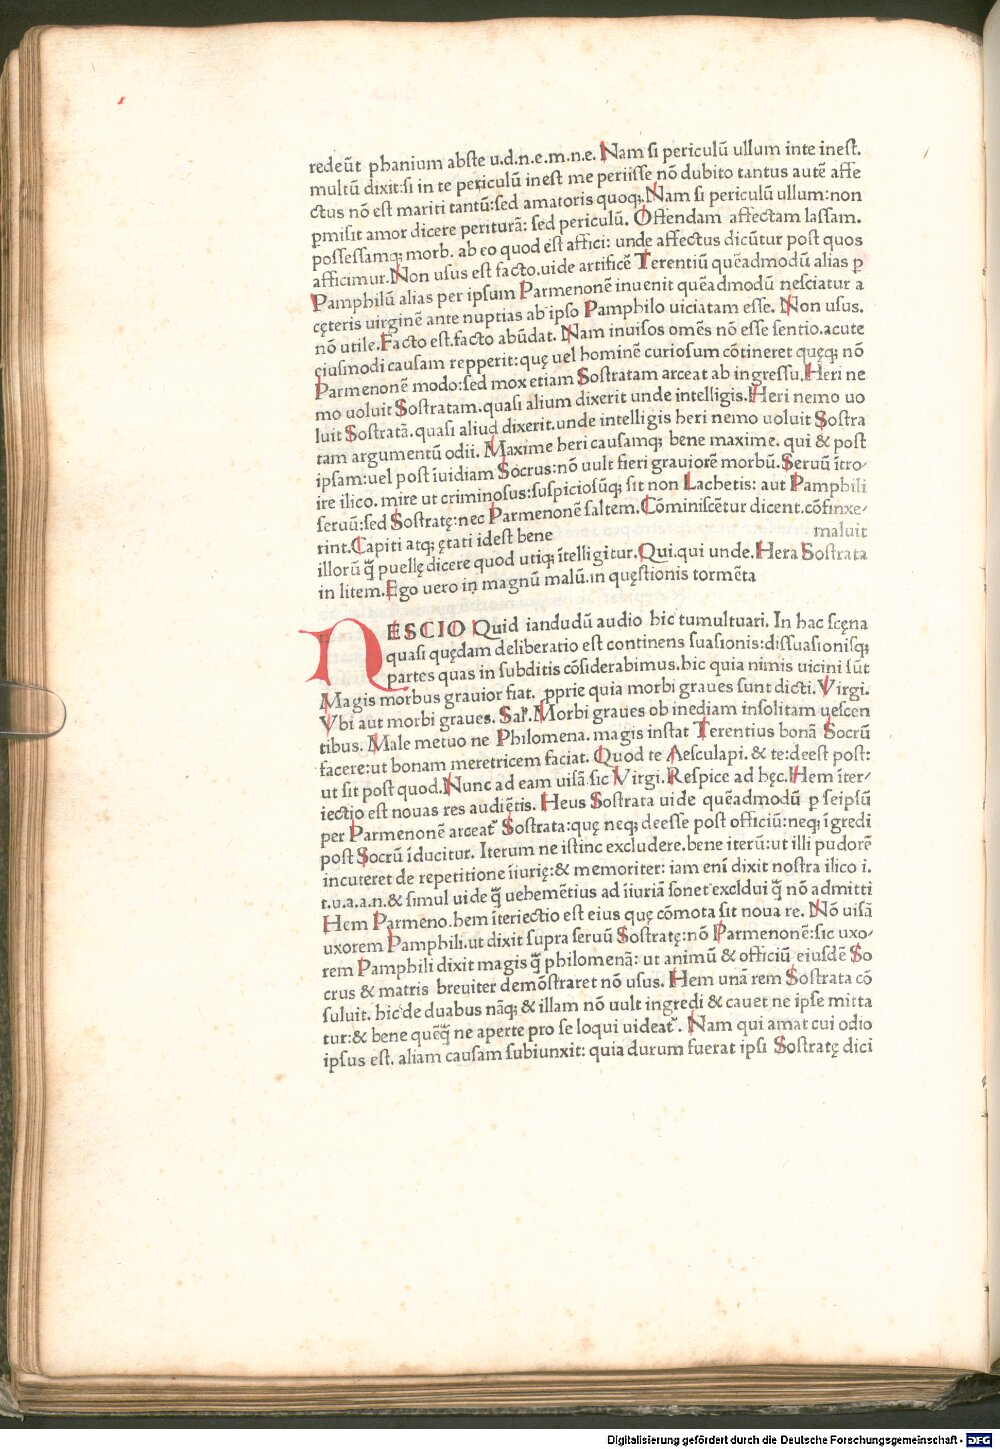 redeūt phanium abste u.d.n.e.m.n.e. Nam si periculū ullum inte inest.
multū dixit:si in te periculū inest me periisse nō dubito tantus autē affe
ctus nō est mariti tantū:sed amatoris quoq;. Nam si periculū ullum:non
ꝑmisit amor dicere periturā: sed periculū. Offendam affectam lassam.
possessamq; morb. ab eo quod est affici: unde affectus dicūtur post quos
afficimur. Non usus est facto.uide artificē Terentiū quēadmodū alias ꝑ
Pamphilū alias per ipsum Parmenonē inuenit quēadmodū nesciatur a
cęteris uirginē ante nuptias ab ipso Pamphilo uiciatam esse. Non usus.
nō utile. Facto est.facto abūdat. Nam inuisos omēs nō esse sentio.acute
eiusmodi causam repperit:quę uel hominē curiosum cōtineret quęq; nō
Parmenonē modo:sed mox etiam Sostratam arceat ab ingressu. Heri ne
mo uoluit Sostratam.quasi alium dixerit unde intelligis. Heri nemo uo
luit Sostratā.quasi aliud dixerit.unde intelligis heri nemo uoluit Sostra
tam argumentū odii. Maxime heri causamq; bene maxime. qui & post
ipsam:uel post īuidiam Socrus:nō uult fieri grauiorē morbū. Seruū ītro-
ire ilico. mire ut criminosus:suspiciosūq; sit non Lachetis: aut Pamphili
seruū:sed Sostratę:nec Parmenonē saltem. Cōminiscētur dicent.cōfinxe-
rint. Capiti atq; ętati idest bene maluit
illorū q̄ puellę dicere quod utiq; ītelligitur. Qui.qui unde. Hera Sostrata
in litem. Ego uero in magnū malū.in quęstionis tormēta
NESCIO Quid iandudū audio hic tumultuari. In hac scęna
quasi quędam deliberatio est continens suasionis:dissuasionisq;
partes quas in subditis cōsiderabimus.hic quia nimis uicini sūt
Magis morbus grauior fiat. ꝓprie quia morbi graues sunt dicti. Virgi.
Vbi aut morbi graues. Sal'. Morbi graues ob inediam insolitam uescen
tibus. Male metuo ne Philomena. magis instat Terentius bonā Socrū
facere:ut bonam meretricem faciat. Quod te Aesculapi. & te:deest post:
ut sit post quod. Nunc ad eam uisā sic Virgi. Respice ad hęc. Hem īter-
iectio est nouas res audiētis. Heus Sostrata uide quēadmodū ꝑ seipsū
per Parmenonē arceat' Sostrata:quę neq; deesse post officiū:neq; īgredi
post Socrū īducitur. Iterum ne istinc excludere.bene iterū:ut illi pudorē
incuteret de repetitione īiurię:& memoriter: iam enī dixit nostra ilico i.
t.u.a.a.n.& simul uide q̄ uehemētius ad īiuriā sonet excldui q̄ nō admitti
Hem Parmeno.hem īteriectio est eius quę cōmota sit noua re. Nō uisā
uxorem Pamphili.ut dixit supra seruū Sostratę:nō Parmenonē:sic uxo-
rem Pamphili dixit magis q̄ philomenā: ut animū & officiū eiusdē So
crus & matris breuiter demōstraret nō usus. Hem unā rem Sostrata cō
suluit. hic de duabus nāq; & illam nō uult ingredi & cauet ne ipse mitta
tur:& bene quēq̄ ne aperte pro se loqui uideat'. Nam qui amat cui odio
ipsus est. aliam causam subiunxit: quia durum fuerat ipsi Sostratę dici
Digitalisierung gefördert durch die Deutsche Forschungsgemeinschaft - DFG